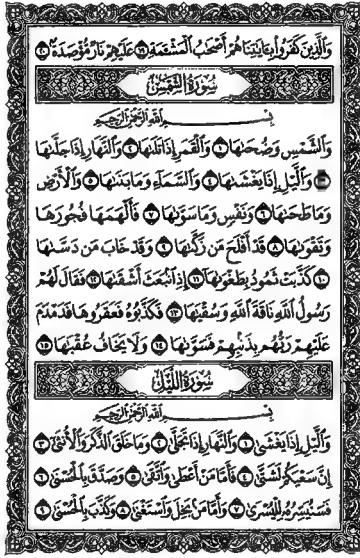 وَالَّذِينَ كَفَرُوا بِـَٔايَٰتِنَا هُمْ أَصْحَٰبُ الْمَشْـَٔمَةِ ١٩ عَلَيْهِمْ نَارٌ مُّؤْصَدَةٌ ٢٠
سُورَةُ الشَّمْسِ
بِسْمِ اللَّهِ الرَّحْمَٰنِ الرَّحِيمِ
وَالشَّمْسِ وَضُحَىٰهَا ١ وَالْقَمَرِ إِذَا تَلَىٰهَا ٢ وَالنَّهَارِ إِذَا جَلَّىٰهَا
٣ وَالَّيْلِ إِذَا يَغْشَىٰهَا ٤ وَالسَّمَآءِ وَمَا بَنَىٰهَا ٥ وَالْأَرْضِ
وَمَا طَحَىٰهَا ٦ وَنَفْسٍ وَمَا سَوَّىٰهَا ٧ فَأَلْهَمَهَا فُجُورَهَا
وَتَقْوَىٰهَا ٨ قَدْ أَفْلَحَ مَن زَكَّىٰهَا ٩ وَقَدْ خَابَ مَن دَسَّىٰهَا
١٠ كَذَّبَتْ ثَمُودُ بِطَغْوَىٰهَا ١١ إِذِ انۢبَعَثَ أَشْقَىٰهَا ١٢ فَقَالَ لَهُمْ
رَسُولُ اللَّهِ نَاقَةَ اللَّهِ وَسُقْيَٰهَا ١٣ فَكَذَّبُوهُ فَعَقَرُوهَا فَدَمْدَمَ
عَلَيْهِمْ رَبُّهُم بِذَنۢبِهِمْ فَسَوَّىٰهَا ١٤ وَلَا يَخَافُ عُقْبَٰهَا ١٥
سُورَةُ اللَّيْلِ
بِسْمِ اللَّهِ الرَّحْمَٰنِ الرَّحِيمِ
وَالَّيْلِ إِذَا يَغْشَىٰ ١ وَالنَّهَارِ إِذَا تَجَلَّىٰ ٢ وَمَا خَلَقَ الذَّكَرَ وَالْأُنثَىٰٓ ٣
إِنَّ سَعْيَكُمْ لَشَتَّىٰ ٤ فَأَمَّا مَنْ أَعْطَىٰ وَاتَّقَىٰ ٥ وَصَدَّقَ بِالْحُسْنَىٰ ٦
فَسَنُيَسِّرُهُۥ لِلْيُسْرَىٰ ٧ وَأَمَّا مَنۢ بَخِلَ وَاسْتَغْنَىٰ ٨ وَكَذَّبَ بِالْحُسْنَىٰ ٩